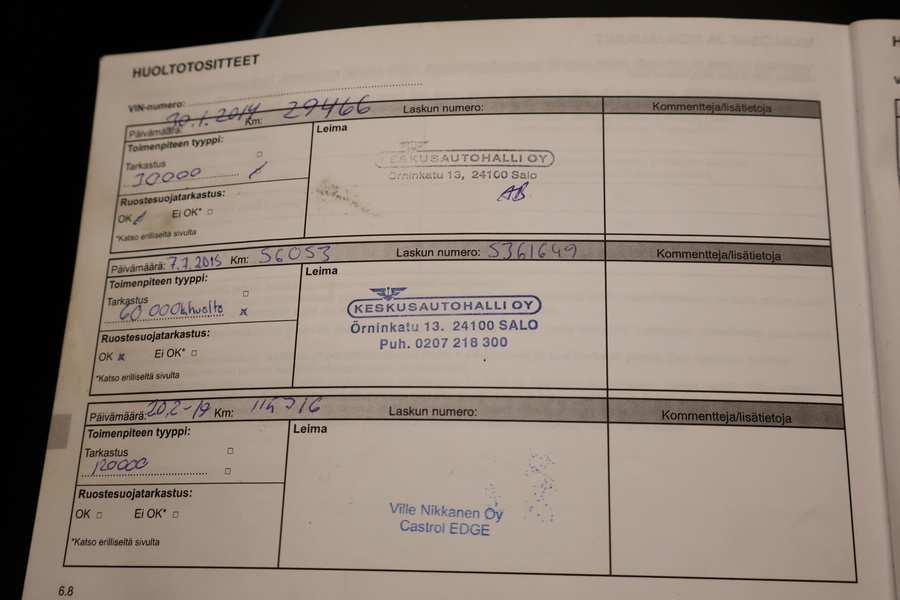 HUOLTOTOSITTEET
VIN-numero:
Päivämäärä: 30.1.2014 Km: 29466 Laskun numero: Kommentteja/lisätietoja
Toimenpiteen tyyppi:
Leima
Tarkastus
30000
KESKUSAUTOHALLI OY
Örninkatu 13, 24100 Salo
AB
Ruostesuojatarkastus:
OK Ei OK*
*Katso erilliseltä sivulta
Päivämäärä: 7.7.2015 Km: 56053 Laskun numero: 5361649 Kommentteja/lisätietoja
Toimenpiteen tyyppi:
Leima
Tarkastus
60 000 huolto
KESKUSAUTOHALLI OY
Örninkatu 13. 24100 SALO
Puh. 0207 218 300
Ruostesuojatarkastus:
OK x Ei OK*
*Katso erilliseltä sivulta
Päivämäärä: 20,2-19 Km: Laskun numero: Kommentteja/lisätietoja
Toimenpiteen tyyppi:
Leima
Tarkastus
120000
Ruostesuojatarkastus:
OK Ei OK*
*Katso erilliseltä sivulta
Ville Nikkanen Oy
Castrol EDGE
6.8